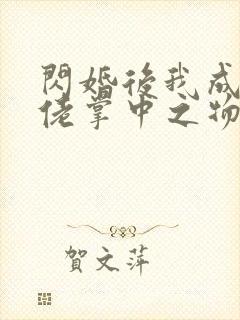 閃婚後我成
佬掌中之物
賀文萍